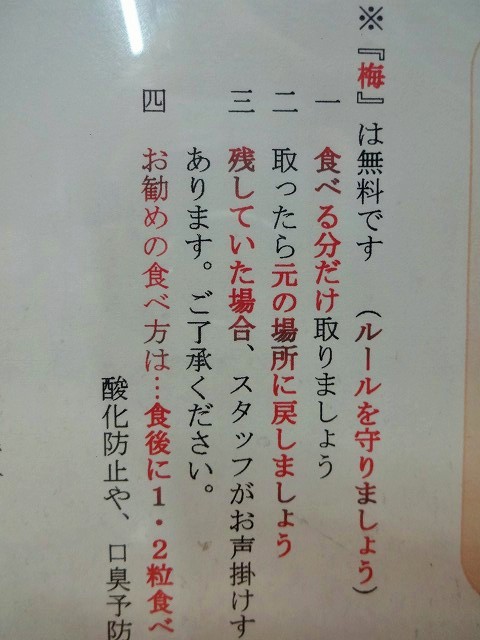 ※『梅』は無料です （ルールを守りましょう）
一 食べる分だけ取りましょう
二 取ったら元の場所に戻しましょう
三 残していた場合、スタッフがお声掛けす
あります。ご了承ください。
四 お勧めの食べ方は…食後に１・２粒食べ
酸化防止や、口臭予防